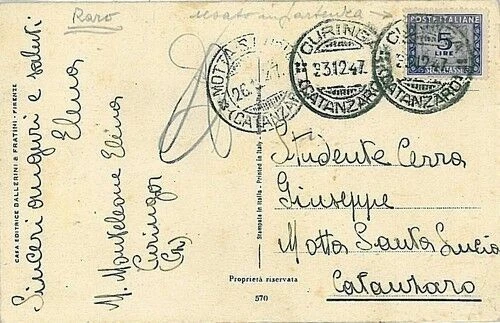 Raro
usato in partenza
CURINGA
23.12.47
(CATANZARO)
MOTTA S.
26
47
(CATANZARO)
CURINGA
12-47
(CATANZARO)
POSTE ITALIANE
5
LIRE
SEGNATASSE
Sinceri auguri e saluti
Elena
M. Monteleone Elena
Curinga
(Cz)
CASA EDITRICE BALLERINI & FRATINI - FIRENZE
Stampata in Italia - Printed in Italy
Studente Cerra
Giuseppe
Motta Santa Lucia
Catanzaro
Proprietà riservata
570